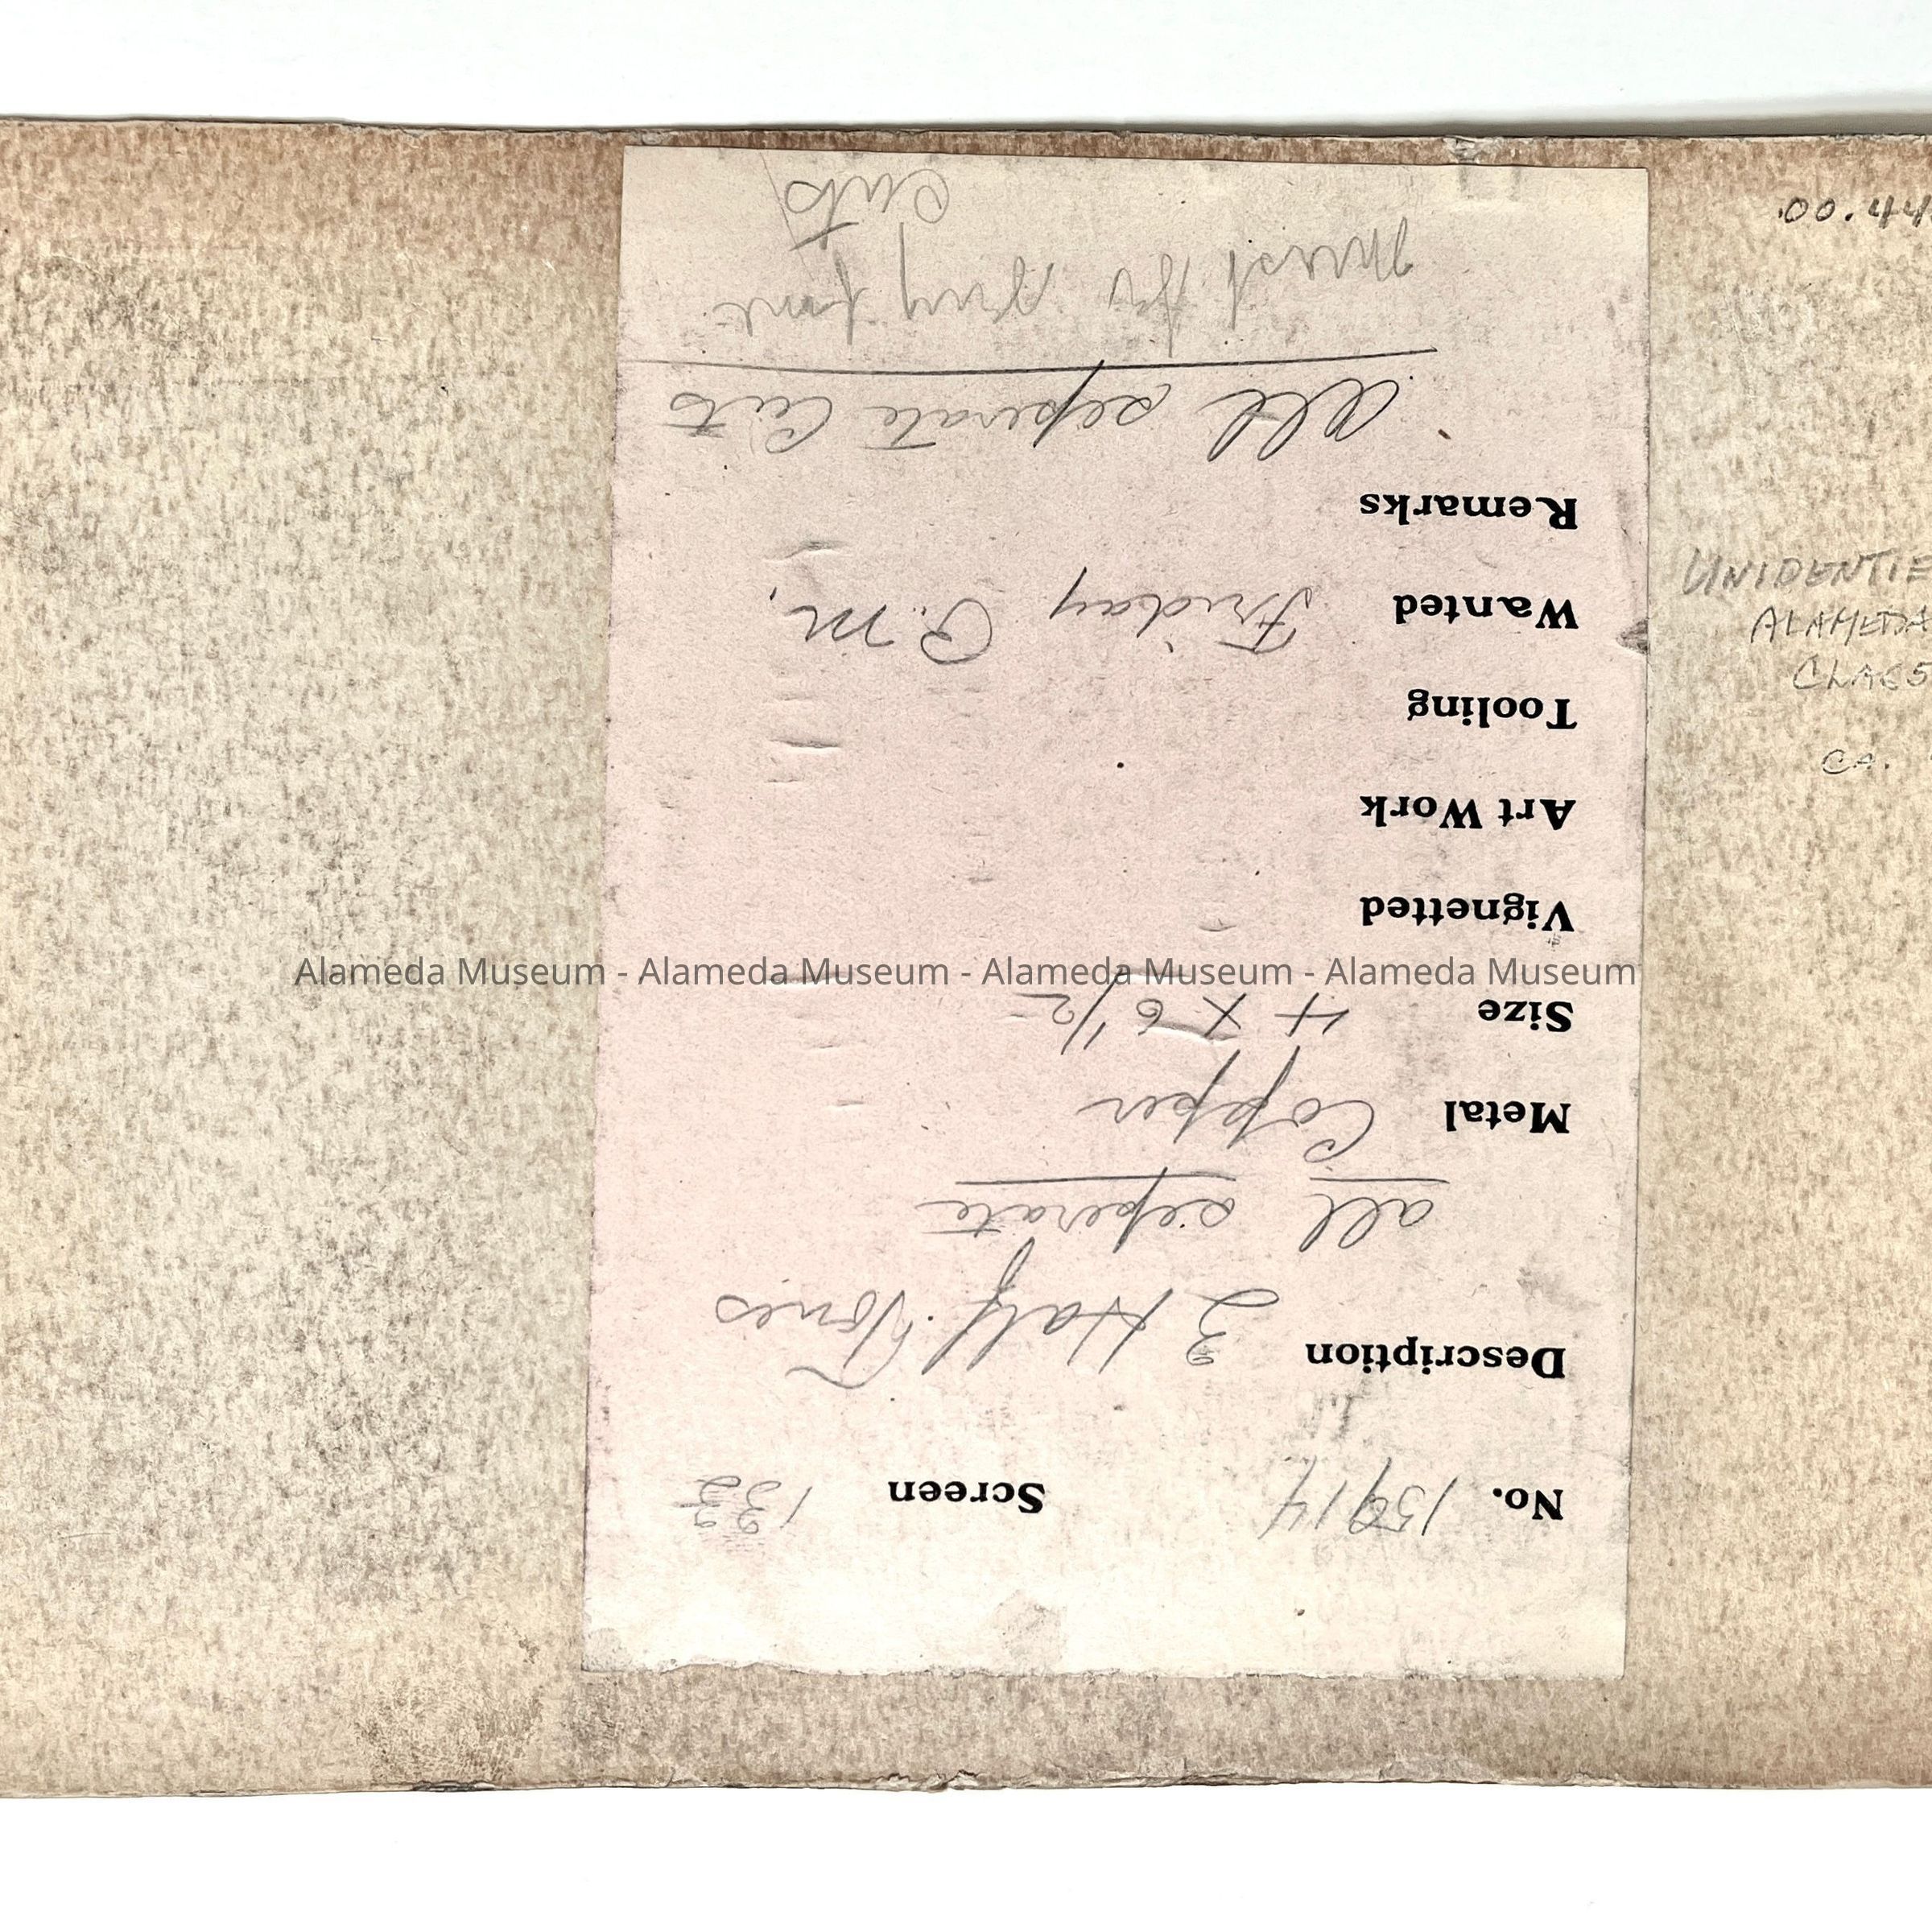 No. 15914 Screen 133
Description 3 Half Tones
all seperate
Metal Copper
Size 4 x 6 1/2
Vignetted
Art Work
Tooling
Wanted Friday P.M.
Remarks
All seperate Cuts
must be very fine
cuts
00.44
UNIDENTIE
ALAMEDA
CLASS
CA.
Alameda Museum - Alameda Museum - Alameda Museum - Alameda Museum